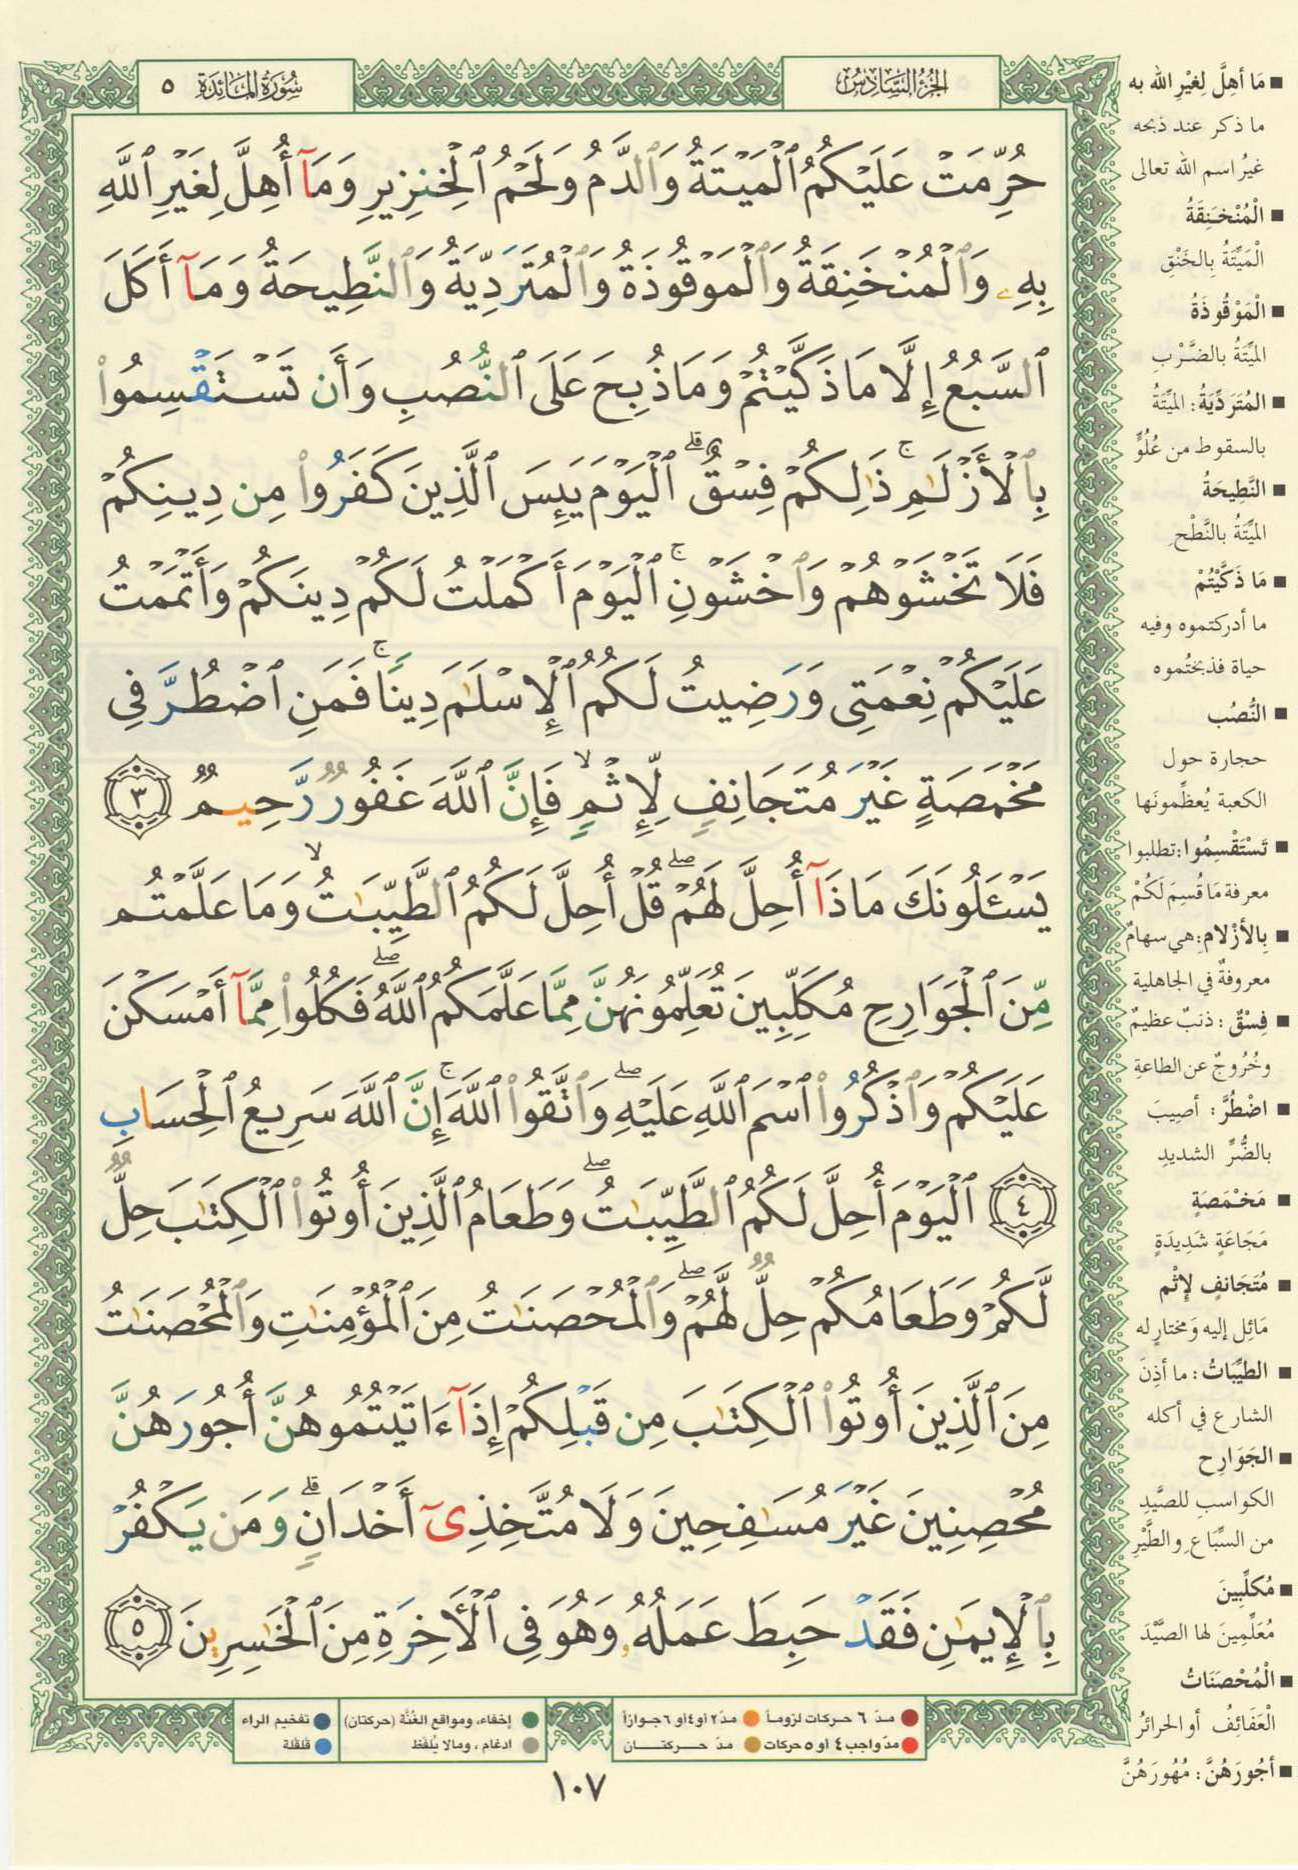 سُورَةُ المَائِدَة ٥
الجُزْءُ السَّادِسُ
حُرِّمَتْ عَلَيْكُمُ ٱلْمَيْتَةُ وَٱلدَّمُ وَلَحْمُ ٱلْخِنزِيرِ وَمَآ أُهِلَّ لِغَيْرِ ٱللَّهِ
بِهِۦ وَٱلْمُنْخَنِقَةُ وَٱلْمَوْقُوذَةُ وَٱلْمُتَرَدِّيَةُ وَٱلنَّطِيحَةُ وَمَآ أَكَلَ
ٱلسَّبُعُ إِلَّا مَا ذَكَّيْتُمْ وَمَا ذُبِحَ عَلَى ٱلنُّصُبِ وَأَن تَسْتَقْسِمُوا۟
بِٱلْأَزْلَٰمِ ۚ ذَٰلِكُمْ فِسْقٌ ۗ ٱلْيَوْمَ يَئِسَ ٱلَّذِينَ كَفَرُوا۟ مِن دِينِكُمْ
فَلَا تَخْشَوْهُمْ وَٱخْشَوْنِ ۚ ٱلْيَوْمَ أَكْمَلْتُ لَكُمْ دِينَكُمْ وَأَتْمَمْتُ
عَلَيْكُمْ نِعْمَتِى وَرَضِيتُ لَكُمُ ٱلْإِسْلَٰمَ دِينًا ۚ فَمَنِ ٱضْطُرَّ فِى
مَخْمَصَةٍ غَيْرَ مُتَجَانِفٍ لِّإِثْمٍ ۙ فَإِنَّ ٱللَّهَ غَفُورٌ رَّحِيمٌ ٣
يَسْـَٔلُونَكَ مَاذَآ أُحِلَّ لَهُمْ ۖ قُلْ أُحِلَّ لَكُمُ ٱلطَّيِّبَٰتُ ۙ وَمَا عَلَّمْتُم
مِّنَ ٱلْجَوَارِحِ مُكَلِّبِينَ تُعَلِّمُونَهُنَّ مِمَّا عَلَّمَكُمُ ٱللَّهُ ۖ فَكُلُوا۟ مِمَّآ أَمْسَكْنَ
عَلَيْكُمْ وَٱذْكُرُوا۟ ٱسْمَ ٱللَّهِ عَلَيْهِ ۖ وَٱتَّقُوا۟ ٱللَّهَ ۚ إِنَّ ٱللَّهَ سَرِيعُ ٱلْحِسَابِ
٤ ٱلْيَوْمَ أُحِلَّ لَكُمُ ٱلطَّيِّبَٰتُ ۖ وَطَعَامُ ٱلَّذِينَ أُوتُوا۟ ٱلْكِتَٰبَ حِلٌّ
لَّكُمْ وَطَعَامُكُمْ حِلٌّ لَّهُمْ ۖ وَٱلْمُحْصَنَٰتُ مِنَ ٱلْمُؤْمِنَٰتِ وَٱلْمُحْصَنَٰتُ
مِنَ ٱلَّذِينَ أُوتُوا۟ ٱلْكِتَٰبَ مِن قَبْلِكُمْ إِذَآ ءَاتَيْتُمُوهُنَّ أُجُورَهُنَّ
مُحْصِنِينَ غَيْرَ مُسَٰفِحِينَ وَلَا مُتَّخِذِىٓ أَخْدَانٍ ۗ وَمَن يَكْفُرْ
بِٱلْإِيمَٰنِ فَقَدْ حَبِطَ عَمَلُهُۥ وَهُوَ فِى ٱلْـَٔاخِرَةِ مِنَ ٱلْخَٰسِرِينَ ٥
مَا أهِلَّ لِغَيْرِ الله به
ما ذكر عند ذبحه
غيرُ اسم الله تعالى
الْمُنْخَنِقَةُ
الْمَيِّتَةُ بِالخَنْقِ
الْمَوْقُوذَةُ
الميِّتَةُ بالضَّرْبِ
المُتَرَدِّيَةُ: الميِّتَةُ
بالسقوط من عُلُوٍّ
النَّطِيحَةُ
الميِّتَةُ بالنَّطْحِ
مَا ذَكَّيْتُمْ
ما أدركتموه وفيه
حياة فذبحتُموه
النُّصُب
حجارة حول
الكعبة يُعظِّمونَها
تَسْتَقْسِمُوا: تطلبوا
معرفة مَا قُسِمَ لَكُمْ
بِالأزْلام: هي سهامٌ
معروفةٌ في الجاهلية
فِسْقٌ: ذنبٌ عظيمٌ
وخُرُوجٌ عن الطاعةِ
اضْطُرَّ: أصيبَ
بالضُّرِّ الشديدِ
مَخْمَصَةٍ
مَجَاعَةٍ شَدِيدَةٍ
مُتَجَانفٍ لإِثْم
مَائِل إليه وَمختارٍ له
الطيِّبَاتُ: ما أذِنَ
الشارع في أكله
الجَوَارِح
الكواسبِ للصَّيْدِ
من السِّبَاعِ والطَّيْرِ
مُكلِّبِينَ
مُعَلِّمِينَ لها الصَّيْدَ
الْمُحْصَنَاتُ
الْعَفَائِفُ أو الحرائرُ
أجُورَهُنَّ: مُهُورَهُنَّ
مدّ ٦ حركات لزوماً
مدّ ٢ او ٤ او ٦ جوازاً
إخفاء، ومواقع الغُنَّة (حركتان)
تفخيم الراء
مدّ واجب ٤ او ٥ حركات
مدّ حركتان
ادغام، ومالا يُلفظ
قلقلة
١٠٧